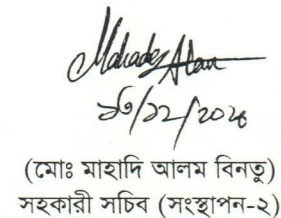 Mahadi Alam
(মোঃ মাহাদি আলম বিনতু)
সহকারী সচিব (সংস্থাপন-২)